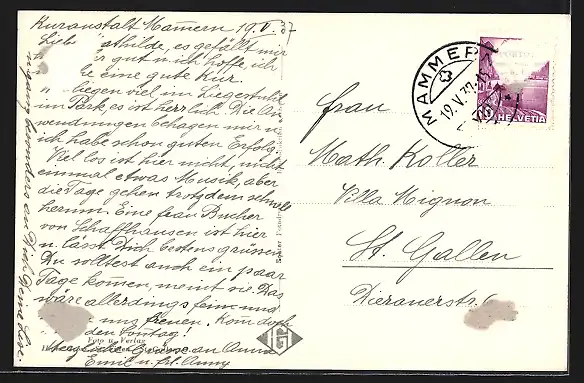 Kuranstalt Mammern 19. V. 37
Liebe Mathilde, es gefällt mir
gut u. ich hoffe, ich
eine gute Kur.
liegen viel im Liegestuhl
im Park, es ist herrlich. Die An-
wendungen behagen mir u.
ich habe schon guten Erfolg.
Viel los ist hier nicht, nicht
einmal etwas Musik, aber
die Tage gehen trotzdem schnell
herum. Eine Frau Bucher
von Schaffhausen ist hier
u. lässt Dich bestens grüssen.
Du solltest auch ein paar
Tage kommen, meint sie. Das
wäre allerdings fein und
uns freuen. Komm doch
den Sonntag!
Herzliche Grüsse an Anna
Emil u. Frl. Anny
Foto u. Verlag
Frau
Math. Koller
Villa Mignon
St. Gallen
Dierauerstr. 6
MAMMERN
19. V. 37
HELVETIA